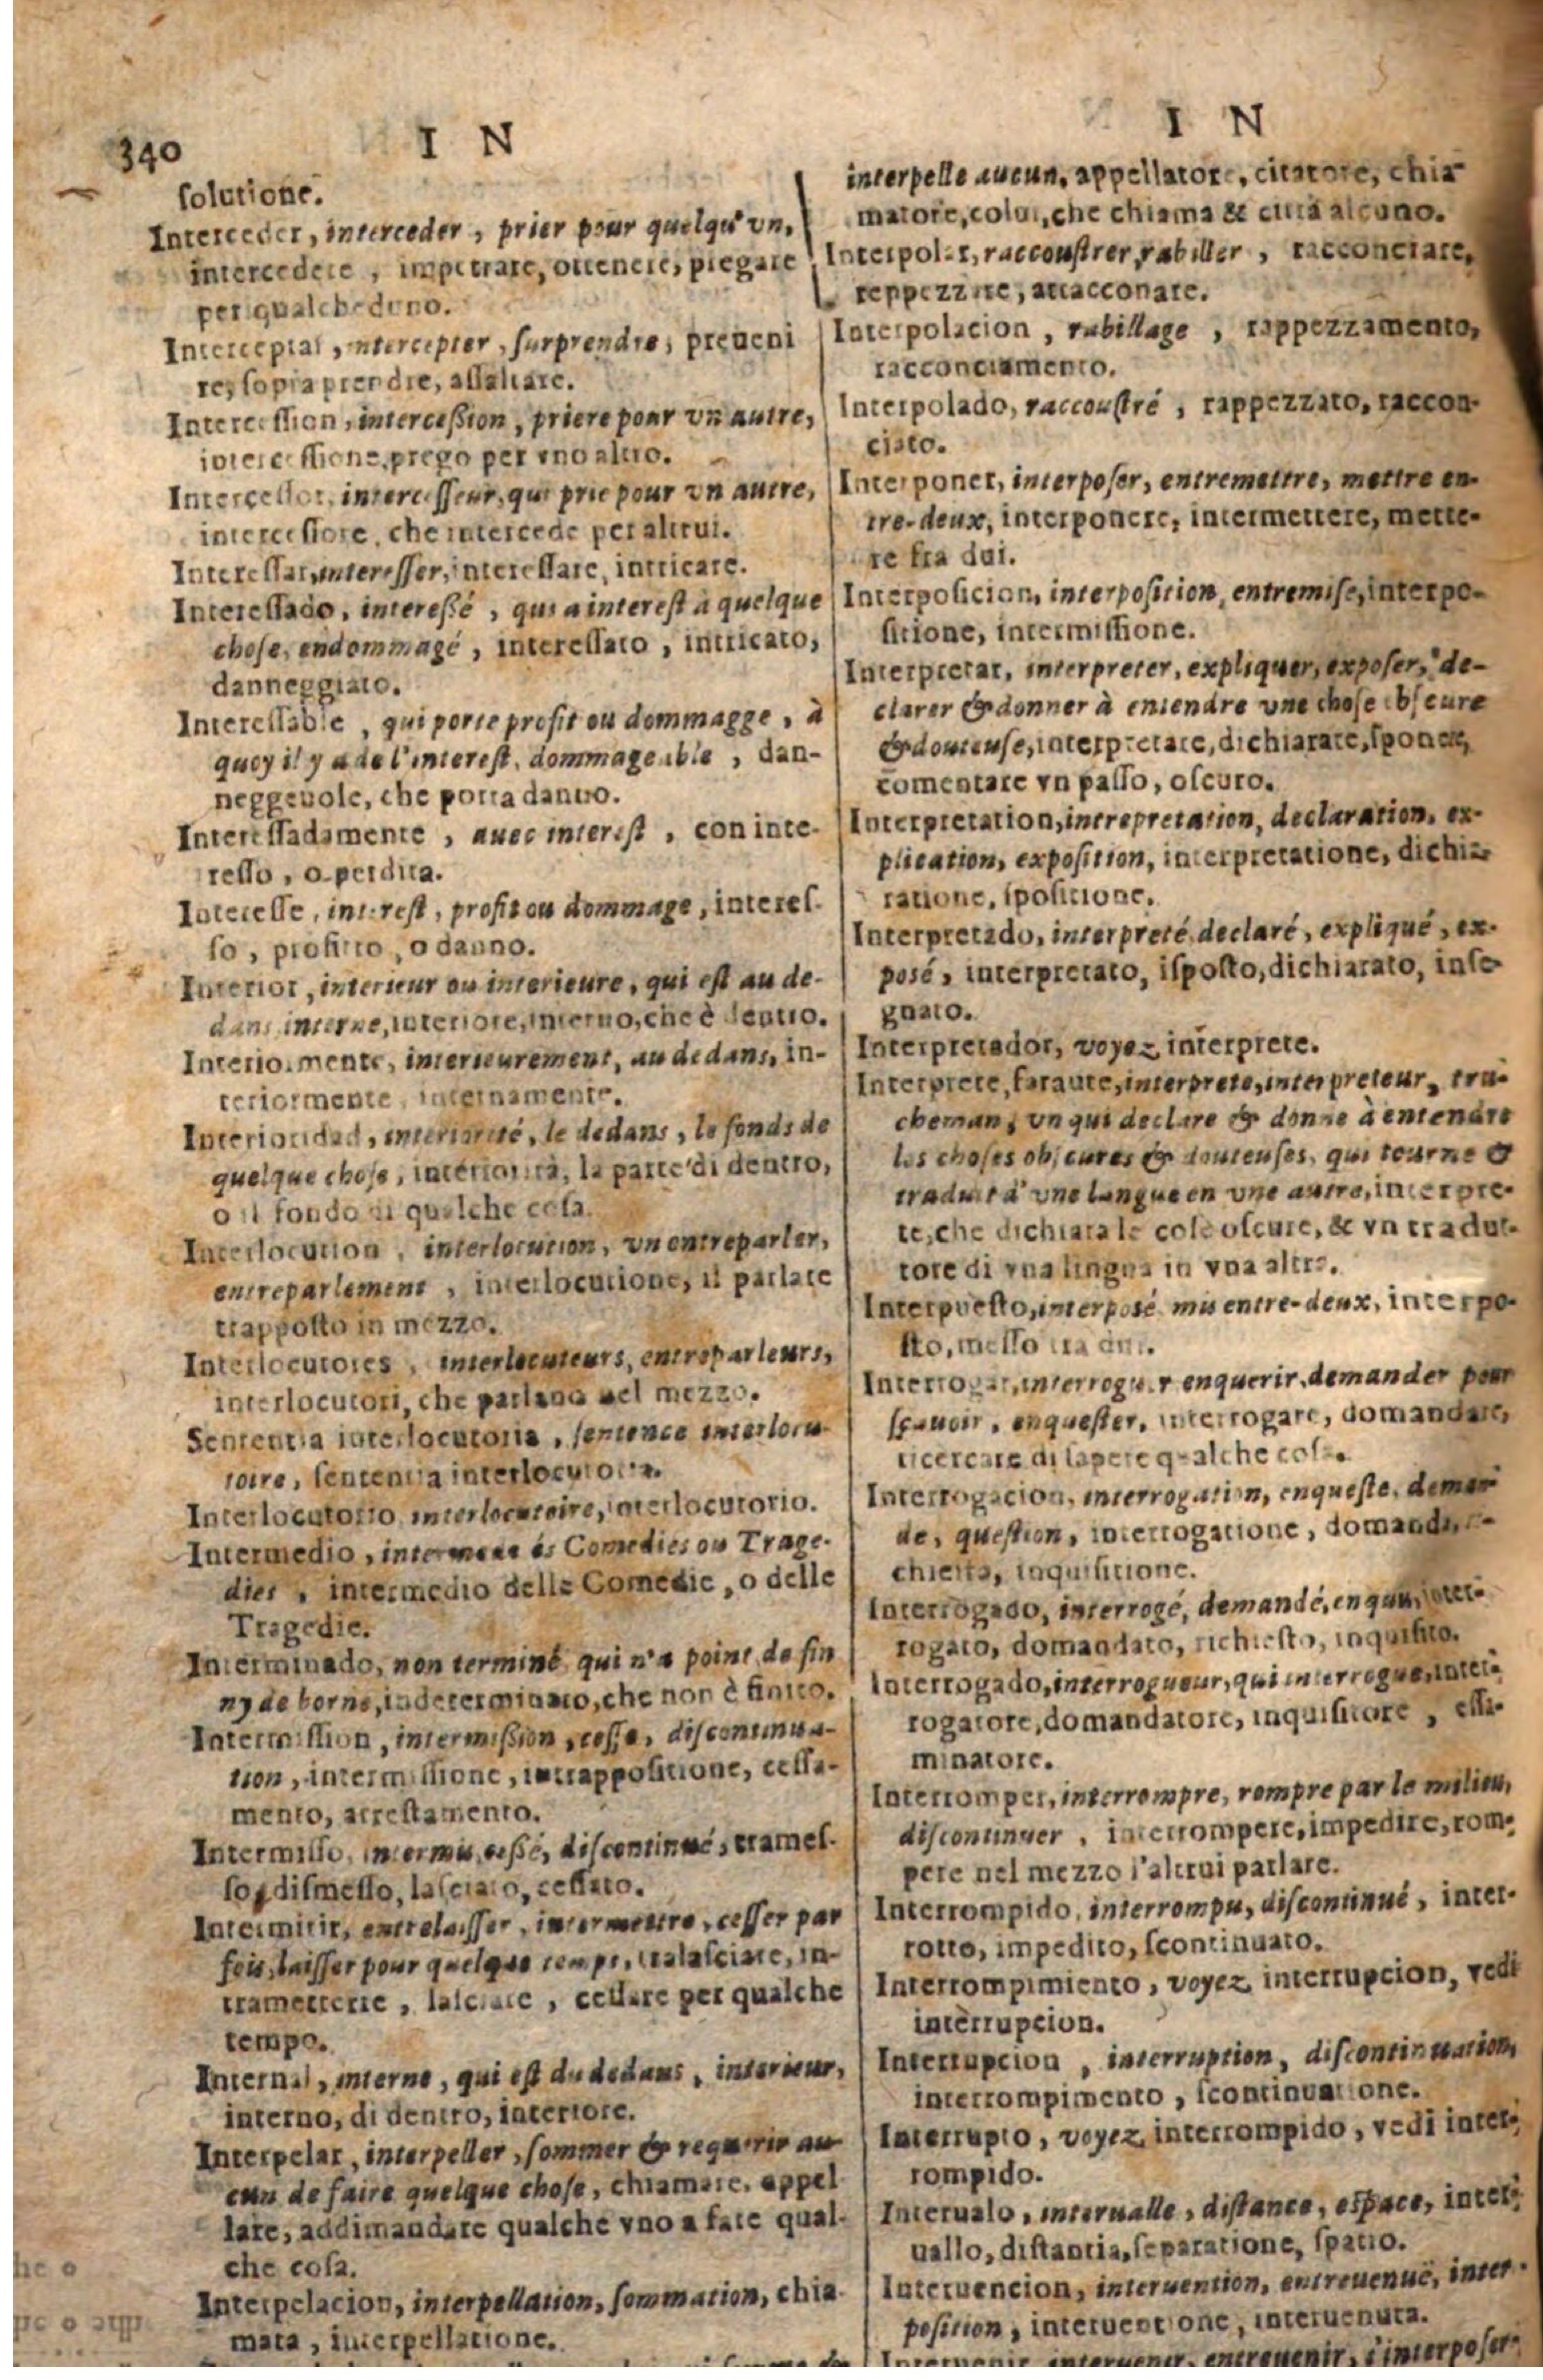 340
I N
solutione.
Interceder, interceder, prier pour quelqu'vn,
intercedere, impetrare, ottenere, pregare
per qualcheduno.
Interceptar, intercepter, surprendre, preueni
re, sopraprendre, assaltare.
Intercession, intercession, priere pour vn autre,
intercessione, prego per vno altro.
Intercessor, intercesseur, qui prie pour vn autre,
intercessore, che intercede per altrui.
Interessar, interesser, interessare, intricare.
Interessado, interessé, qui a interest à quelque
chose, endommagé, interessato, intricato,
danneggiato.
Interessable, qui porte profit ou dommagge, à
quoy il y a de l'interest, dommageable, dan-
neggeuole, che porta danno.
Interessadamente, auec interest, con inte-
resso, o perdita.
Interesse, interest, profit ou dommage, interes-
so, profitto, o danno.
Interior, interieur ou interieure, qui est au de-
dans, interne, interiore, interno, che è dentro.
Interiormente, interieurement, au dedans, in-
teriormente, internamente.
Interioridad, interiorité, le dedans, le fonds de
quelque chose, interiorità, la parte di dentro,
o il fondo di qualche cosa.
Interlocution, interlocution, vn entreparler,
entreparlement, interlocutione, il parlare
trapposto in mezzo.
Interlocutores, interlocuteurs, entreparleurs,
interlocutori, che parlano nel mezzo.
Sententia interlocutoria, sentence interlocu-
toire, sententia interlocutoria.
Interlocutorio, interlocutoire, interlocutorio.
Intermedio, intermede és Comedies ou Trage-
dies, intermedio delle Comedie, o delle
Tragedie.
Interminado, non terminé qui n'a point de fin
ny de borne, indeterminato, che non è finito.
Intermission, intermission, cesse, discontinua-
tion, intermissione, intrappositione, cessa-
mento, arrestamento.
Intermisso, intermis, cessé, discontinué, trames-
so, dismesso, lasciato, cessato.
Intermitir, entrelaisser, intermettre, cesser par
fois, laisser pour quelque temps, tralasciare, in-
trametterie, lasciare, cessare per qualche
tempo.
Internal, interne, qui est du dedans, interieur,
interno, di dentro, interiore.
Interpelar, interpeller, sommer & requerir au-
cun de faire quelque chose, chiamare, appel
lare, addimandare qualche vno a fare qual-
che cosa.
Interpelacion, interpellation, sommation, chia-
mata, interpellatione.
I N
interpelle aucun, appellatore, citatore, chia-
matore, colui, che chiama & citta alcuno.
Interpolar, raccoustrer, rabiller, racconciare,
reppezzare, attacconare.
Interpolacion, rabillage, rappezzamento,
racconciamento.
Interpolado, raccoustré, rappezzato, raccon-
ciato.
Interponer, interposer, entremettre, mettre en-
tre-deux, interponere, intermettere, mette-
re fra dui.
Interposicion, interposition, entremise, interpo-
sitione, intermissione.
Interpretar, interpreter, expliquer, exposer, de-
clarer & donner à entendre vne chose obscure
& douteuse, interpretare, dichiarare, sponere,
comentare vn passo, oscuro.
Interpretation, intrepretation, declaration, ex-
plication, exposition, interpretatione, dichia-
ratione, spositione.
Interpretado, interpreté, declaré, expliqué, ex-
posé, interpretato, isposto, dichiarato, inse-
gnato.
Interpretador, voyez interprete.
Interprete, faraute, interprete, interpreteur, tru-
cheman, vn qui declare & donne à entendre
les choses obscures & douteuses, qui tourne &
traduit d'vne langue en vne autre, interpre-
te, che dichiara le cose oscure, & vn tradut-
tore di vna lingua in vna altra.
Interpuesto, interposé mis entre-deux, interpo-
sto, messo tra dui.
Interrogar, interroguer enquerir, demander pour
sçauoir, enquester, interrogare, domandare,
ricercare di sapere qualche cosa.
Interrogacion, interrogation, enqueste, deman-
de, question, interrogatione, domanda,
chiesta, inquisitione.
Interrogado, interrogé, demandé, enquis, inter-
rogato, domandato, richiesto, inquisito.
Interrogado, interrogueur, qui interrogue, inter-
rogatore, domandatore, inquisitore, essi-
minatore.
Interromper, interrompre, rompre par le milieu,
discontinuer, interrompere, impedire, rom-
pere nel mezzo l'altrui parlare.
Interrompido, interrompu, discontinué, inter-
rotto, impedito, scontinuato.
Interrompimiento, voyez interrupcion, vedi
intèrrupcion.
Interrupcion, interruption, discontinuation,
interrompimento, scontinuatione.
Interrupto, voyez interrompido, vedi inter-
rompido.
Interualo, interualle, distance, espace, inter-
uallo, distantia, separatione, spatio.
Interuencion, interuention, entreuenuë, inter-
position, interuentione, interuenuta.
Interuenir, interuenir, entreuenir, s'interposer